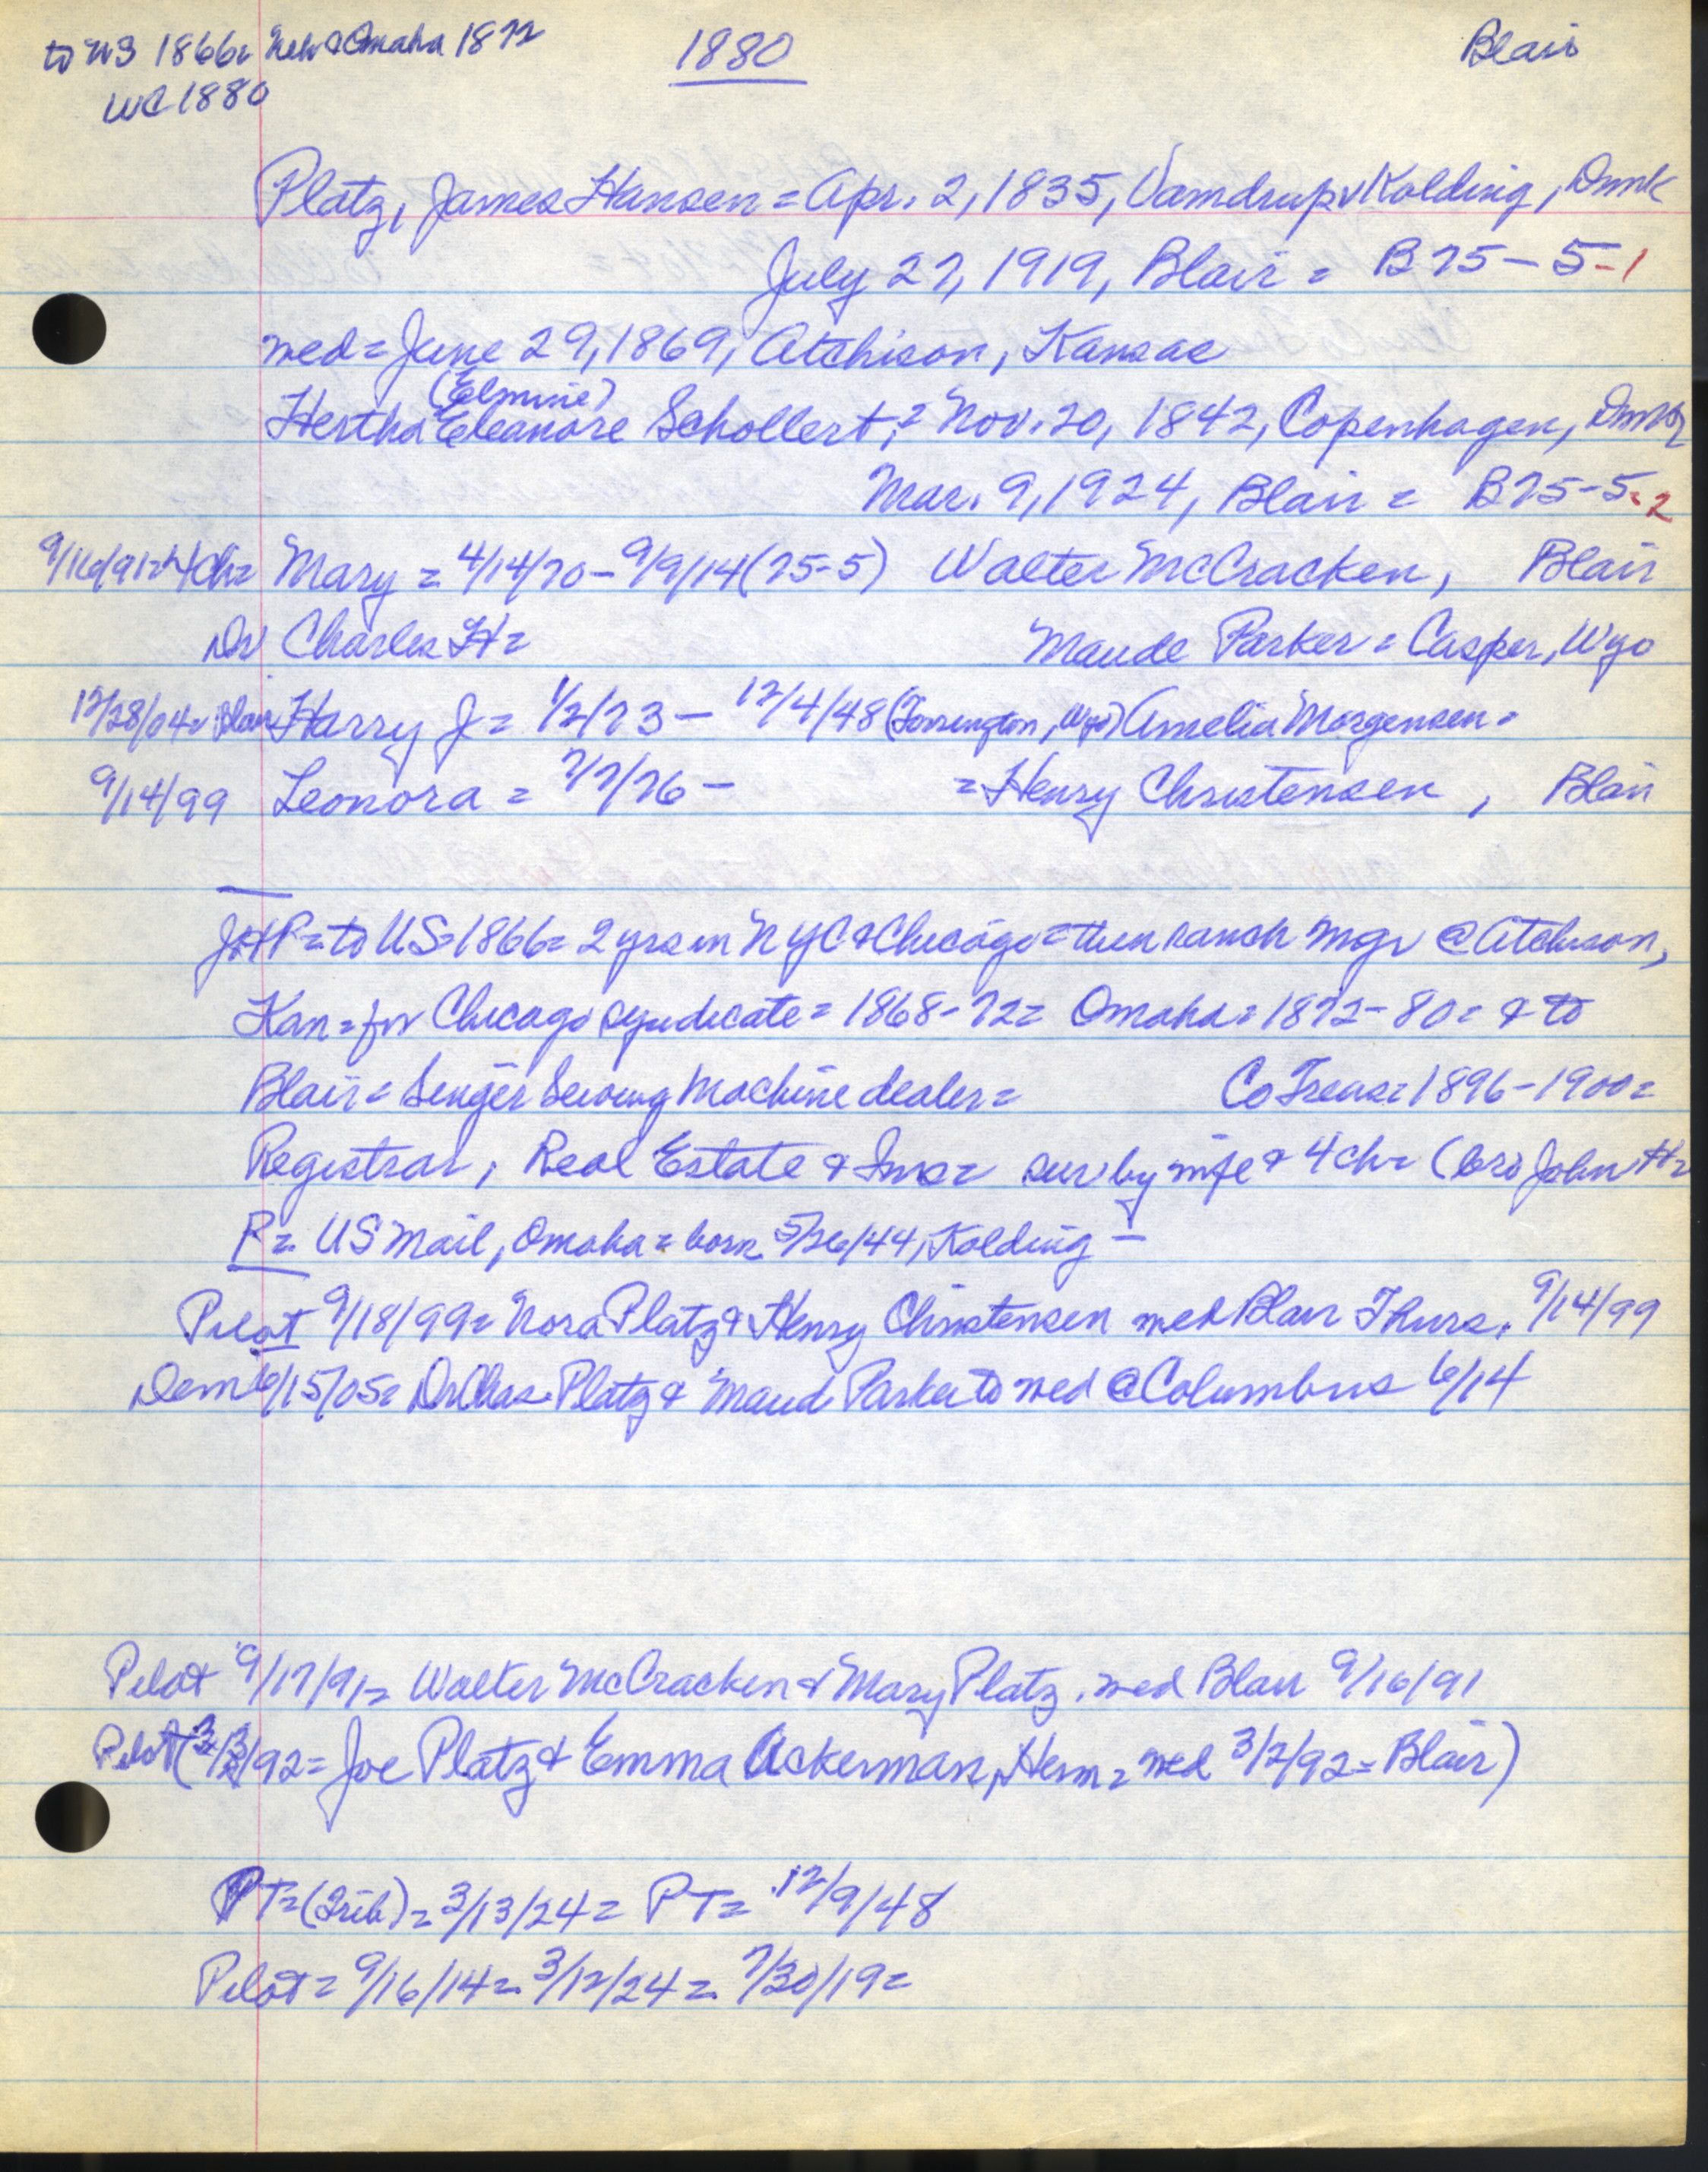 to US 1866= Neb & Omaha 1872 1880 Blair
WC 1880
Platz, James Hansen = Apr. 2, 1835, Vamdrup v Kolding, Dnmk
July 27, 1919, Blair = B75-5-1
med = June 29, 1869, Atchison, Kansas
(Elmine)
Hertha Eleanore Schollert, = Nov. 20, 1842, Copenhagen, Dnmk
Mar. 9, 1924, Blair = B75-5-2
9/16/91=4ch= Mary = 4/14/70 - 9/9/14 (75-5) Walter McCracken, Blair
Dr Charles H= Maude Parker = Casper, Wyo
12/28/04= Blair Harry J = 1/2/73 - 12/4/48 (Torrington, Wyo) Amelia Morgensen =
9/14/99 Leonora = 7/7/76 - = Henry Christensen, Blair
JHP = to US 1866= 2 yrs in NYC & Chicago = then ranch mgr @ Atchison,
Kan = for Chicago syndicate = 1868-72= Omaha = 1872-80= & to
Blair = Singer Sewing Machine dealer = Co Treas = 1896-1900=
Registrar, Real Estate & Ins = sur by wife & 4 ch= (bro John H=
P = US Mail, Omaha = born 5/26/44, Kolding -
Pilot 9/18/99= Nora Platz & Henry Christensen med Blair Thurs. 9/14/99
Dem 6/15/05= Dr Chas Platz & Maud Parker to med @ Columbus 6/14
Pilot 9/17/91= Walter McCracken & Mary Platz. med Blair 9/16/91
Pilot (3/3/92= Joe Platz & Emma Ackerman, Herm = med 3/2/92= Blair)
PT= (Trib) = 3/13/24= PT= 12/9/48
Pilot = 9/16/14= 3/12/24= 7/30/19=